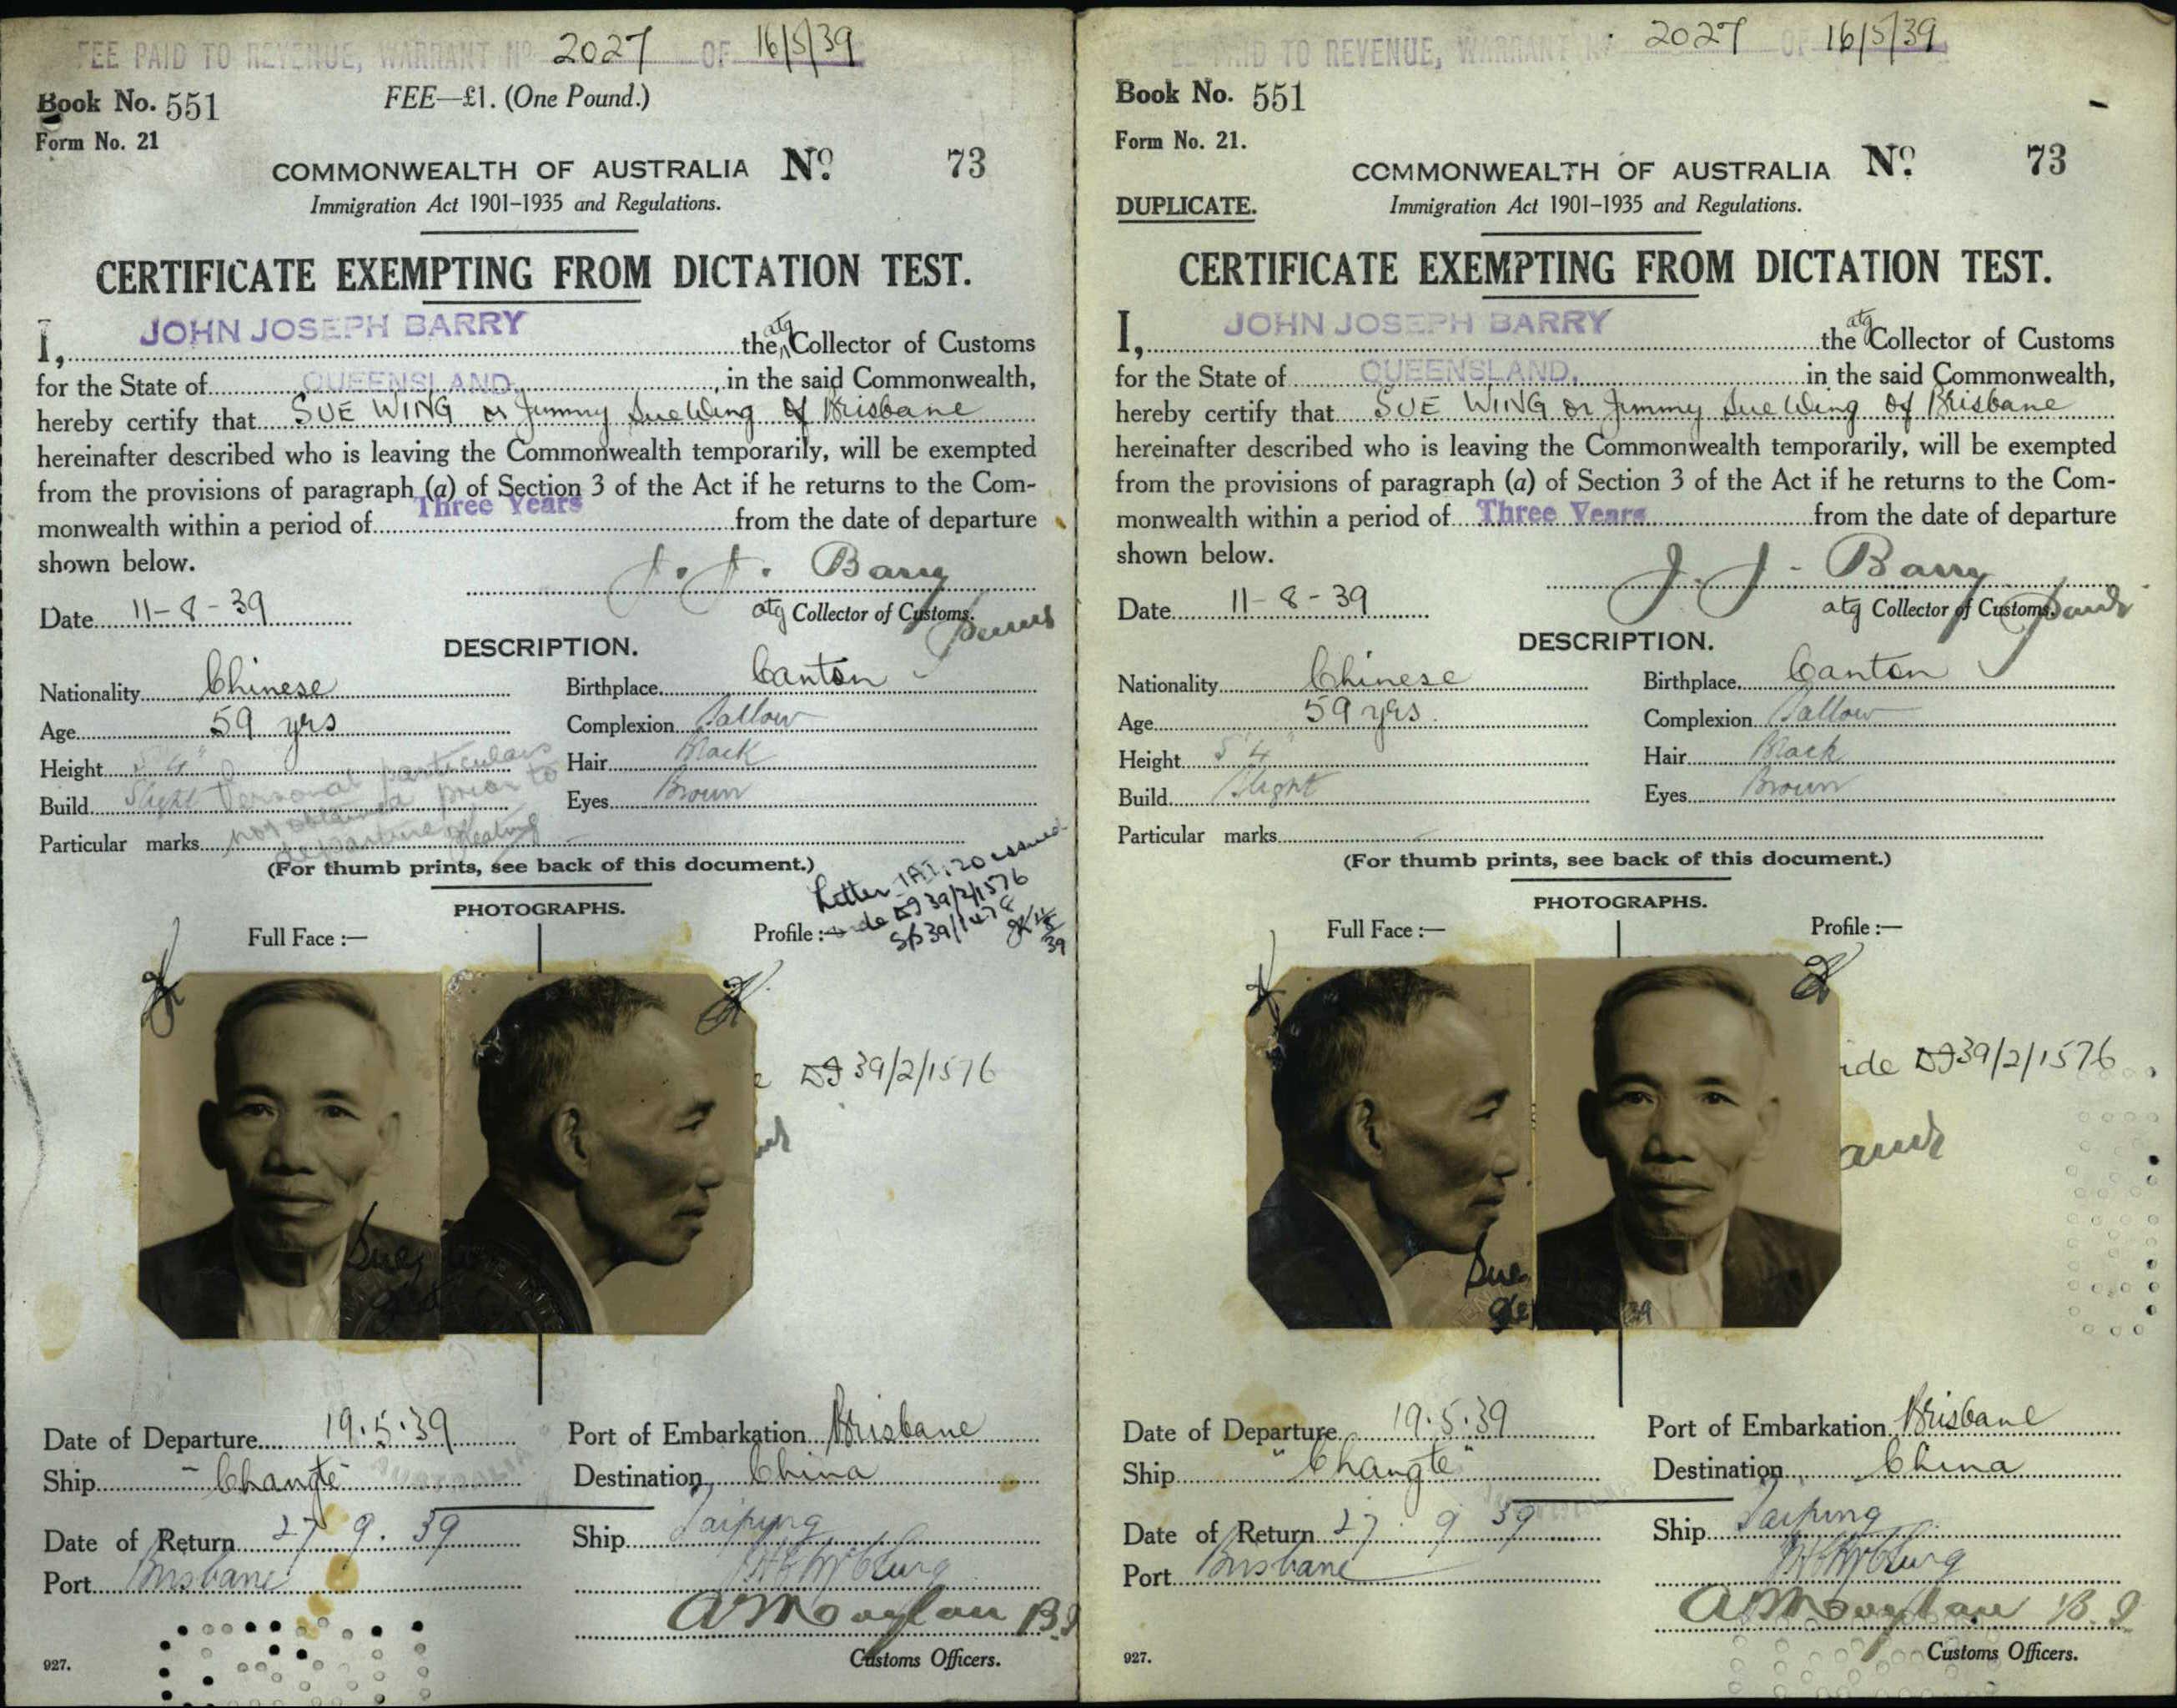 FEE PAID TO REVENUE, WARRANT Nº 2027 OF 16/5/39
Book No. 551
FEE—£1. (One Pound.)
Form No. 21
COMMONWEALTH OF AUSTRALIA Nº 73
Immigration Act 1901-1935 and Regulations.
CERTIFICATE EXEMPTING FROM DICTATION TEST.
I, JOHN JOSEPH BARRY the atg Collector of Customs
for the State of QUEENSLAND, in the said Commonwealth,
hereby certify that SUE WING or Jimmy Sue Wing of Brisbane
hereinafter described who is leaving the Commonwealth temporarily, will be exempted
from the provisions of paragraph (a) of Section 3 of the Act if he returns to the Com-
monwealth within a period of Three Years from the date of departure
shown below.
J. J. Barry
Date 11-8-39
atg Collector of Customs.
DESCRIPTION.
Nationality Chinese Birthplace Canton
Age 59 yrs Complexion Sallow
Height 5'4" Hair Black
Build Slight Eyes Brown
Personal particulars
not obtained prior to
departure
Particular marks
(For thumb prints, see back of this document.)
Letter IAI.20 issued
vide D39/2/1576
S/B39/1478
PHOTOGRAPHS.
Full Face :— Profile :—
39/2/1576
Sue
Date of Departure 19.5.39 Port of Embarkation Brisbane
Ship "Changte" Destination China
AUSTRALIA
Date of Return 27 9. 39 Ship Taiping
Port Brisbane
A Moylan B.I
927.
Customs Officers.
FEE PAID TO REVENUE, WARRANT Nº 2027 OF 16/5/39
Book No. 551
Form No. 21.
COMMONWEALTH OF AUSTRALIA Nº 73
DUPLICATE.
Immigration Act 1901-1935 and Regulations.
CERTIFICATE EXEMPTING FROM DICTATION TEST.
I, JOHN JOSEPH BARRY the atg Collector of Customs
for the State of QUEENSLAND, in the said Commonwealth,
hereby certify that SUE WING or Jimmy Sue Wing of Brisbane
hereinafter described who is leaving the Commonwealth temporarily, will be exempted
from the provisions of paragraph (a) of Section 3 of the Act if he returns to the Com-
monwealth within a period of Three Years from the date of departure
shown below.
J. J. Barry
Date 11-8-39
atg Collector of Customs.
DESCRIPTION.
Nationality Chinese Birthplace Canton
Age 59 yrs Complexion Sallow
Height 5'4" Hair Black
Build Slight Eyes Brown
Particular marks
(For thumb prints, see back of this document.)
PHOTOGRAPHS.
Full Face :— Profile :—
39/2/1576
Sue
39
Date of Departure 19.5.39 Port of Embarkation Brisbane
Ship "Changte" Destination China
Date of Return 27 9 39 Ship Taiping
Port Brisbane
A Moylan B.I
927.
Customs Officers.